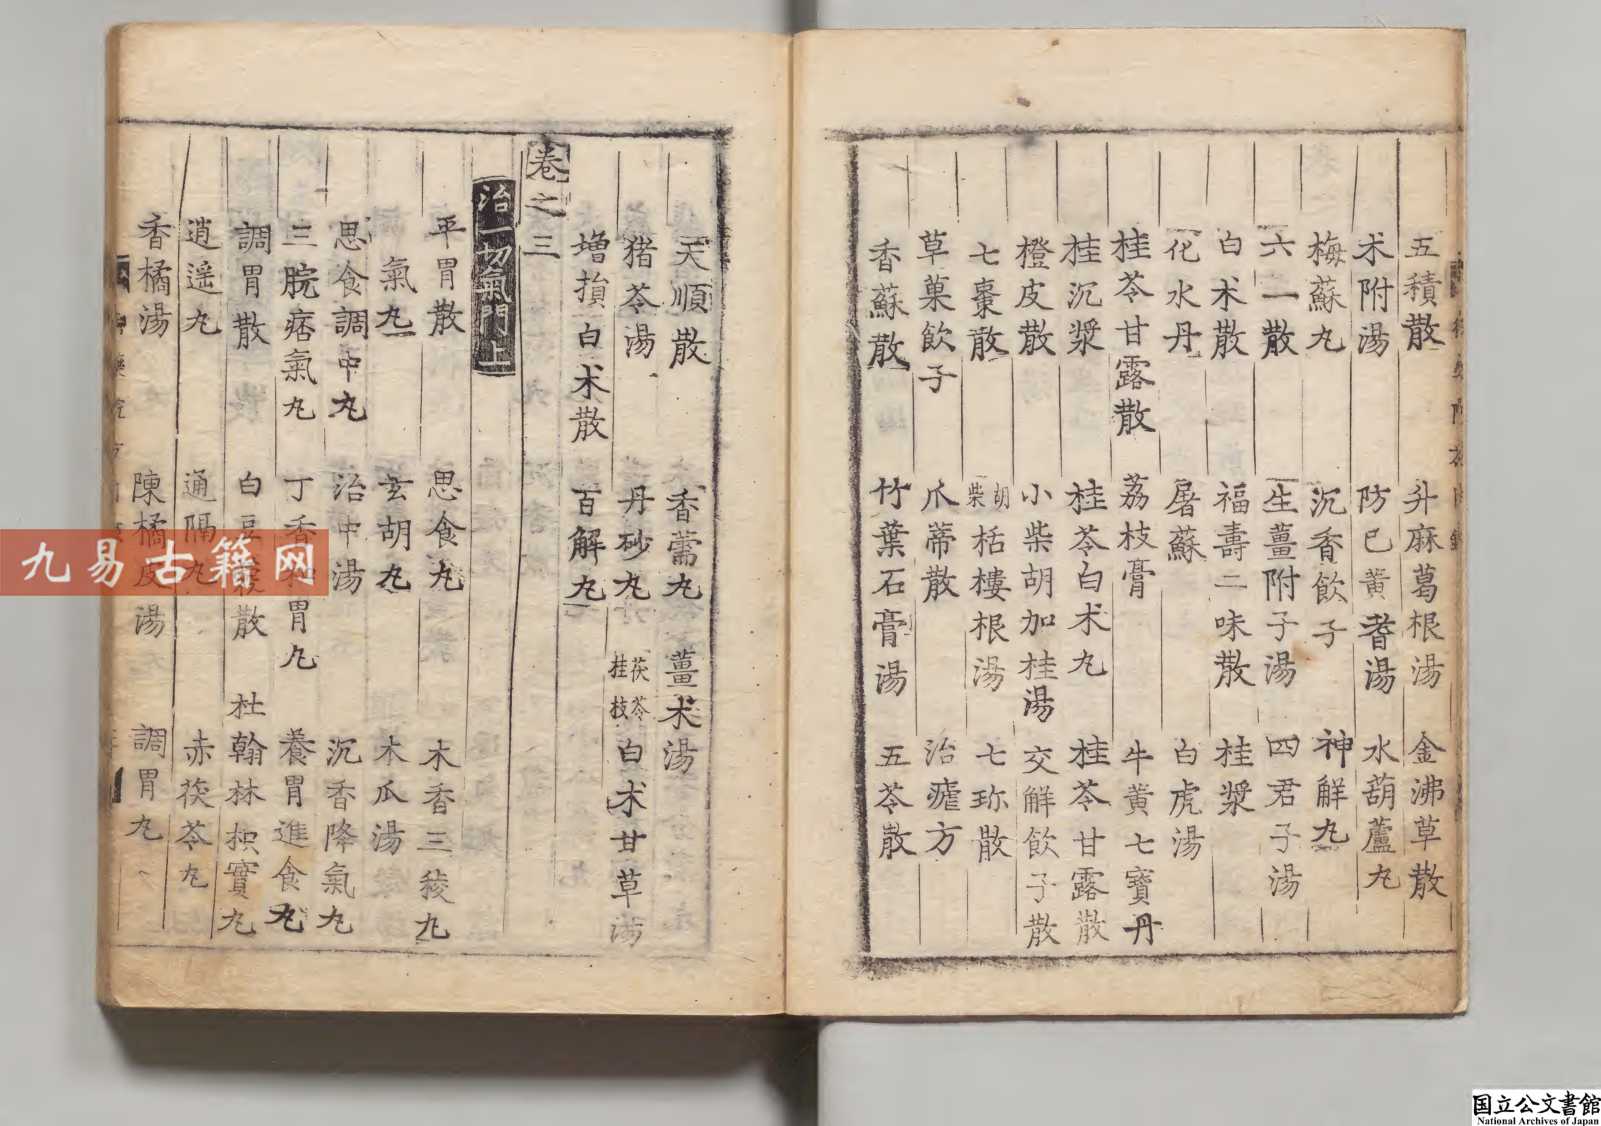 五積散　升麻葛根湯　金沸草散
术附湯　防已黄耆湯　水葫蘆丸
梅蘇丸　沉香飲子　神觧丸
六一散　生薑附子湯　四君子湯
白术散　福壽二味散　桂漿
化水丹　屠蘇　白虎湯
桂苓甘露散　荔枝膏　牛黄七寶丹
桂沉漿　桂苓白术丸　桂苓甘露散
橙皮散　小柴胡加桂湯　交觧飲子散
七棗散　胡柴栝樓根湯　七珎散
草菓飲子　爪蒂散　治瘧方
香蘇散　竹葉石膏湯　五苓散
天順散　香薷丸　薑术湯
猪苓湯　丹砂丸　茯苓桂枝白术甘草湯
增損白术散　百解丸
卷之三
治一切氣門上
平胃散　思食丸　木香三稜丸
氣丸　玄胡丸　木瓜湯
思食調中丸　治中湯　沉香降氣丸
三脘痞氣丸　丁香和胃丸　養胃進食丸
調胃散　白豆蔻散　杜翰林枳實丸
逍遥丸　通隔丸　赤茯苓丸
香橘湯　陳橘皮湯　調胃丸
九易古籍网
国立公文書館
National Archives of Japan